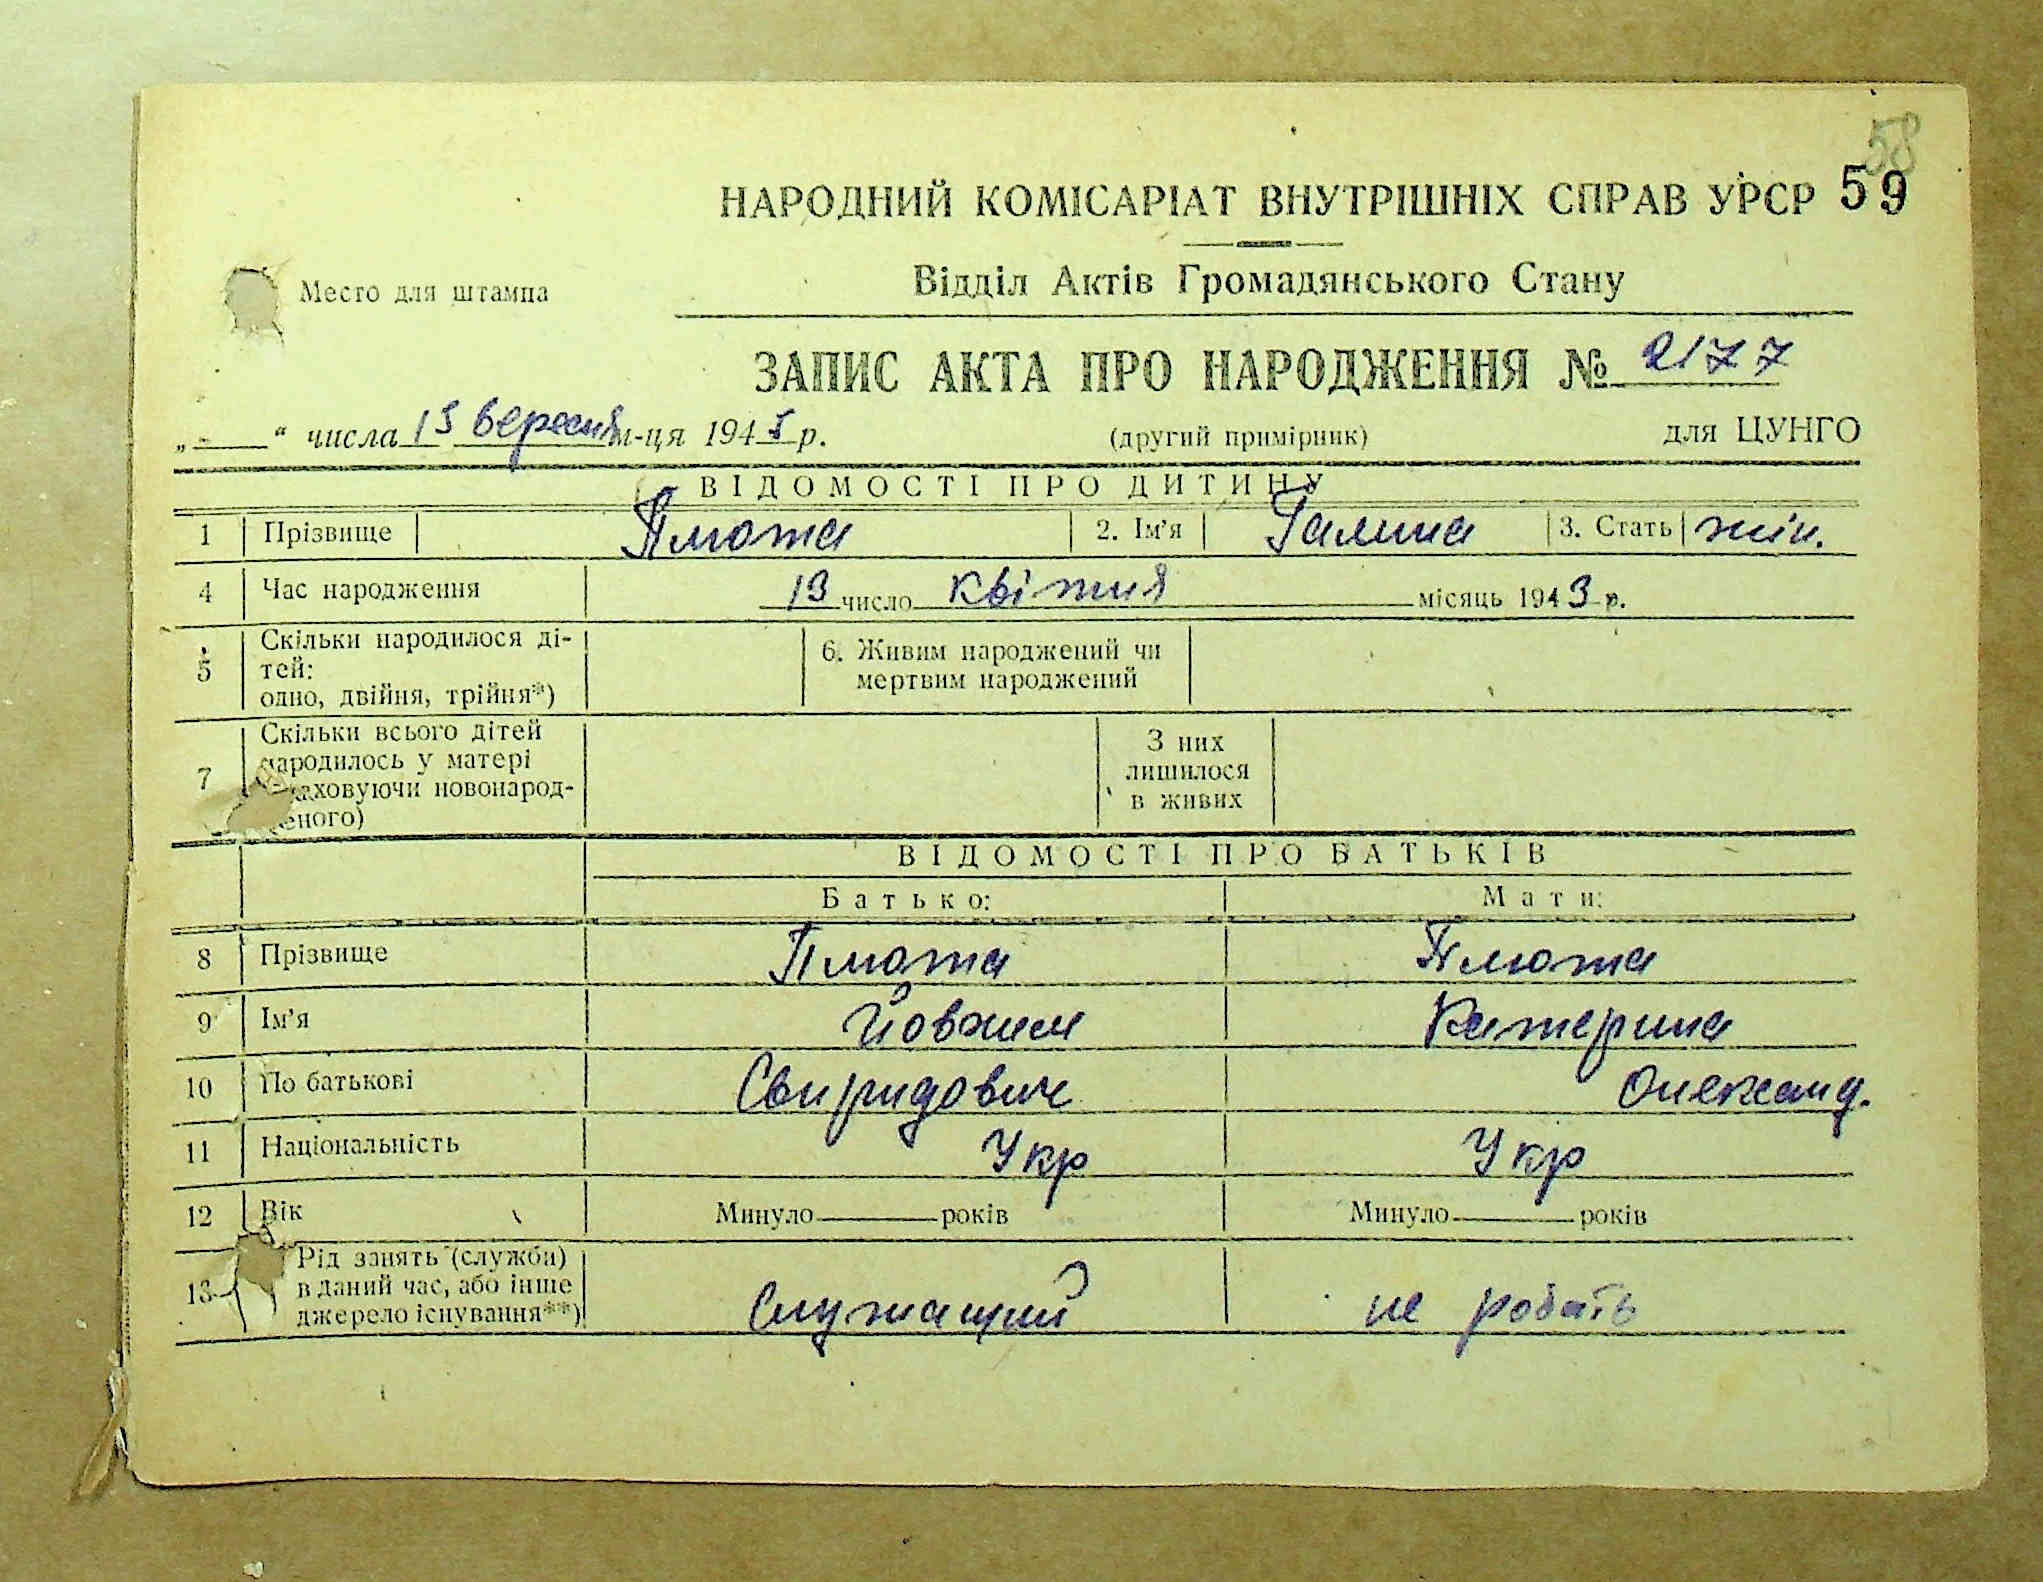 58
НАРОДНИЙ КОМІСАРІАТ ВНУТРІШНІХ СПРАВ УРСР 59
Место для штампа
Відділ Актів Громадянського Стану
ЗАПИС АКТА ПРО НАРОДЖЕННЯ № 2177
„ - “ числа 13 вересня м-ця 1945 р. (другий примірник) для ЦУНГО
ВІДОМОСТІ ПРО ДИТИНУ
1 Прізвище Плюта 2. Ім'я Галина 3. Стать жін.
4 Час народження 13 число квітня місяць 1943 р.
5 Скільки народилося ді-
тей:
одно, двійня, трійня*)
6. Живим народжений чи
мертвим народжений
7 Скільки всього дітей
народилось у матері
раховуючи новонарод-
еного)
З них
лишилося
в живих
ВІДОМОСТІ ПРО БАТЬКІВ
Батько: Мати:
8 Прізвище Плюта Плюта
9 Ім'я Йовхим Катерина
10 По батькові Свиридович Олександ.
11 Національність Укр Укр
12 Вік Минуло років Минуло років
13 Рід занять (служби)
в даний час, або інше
джерело існування**)
Служащий не робать